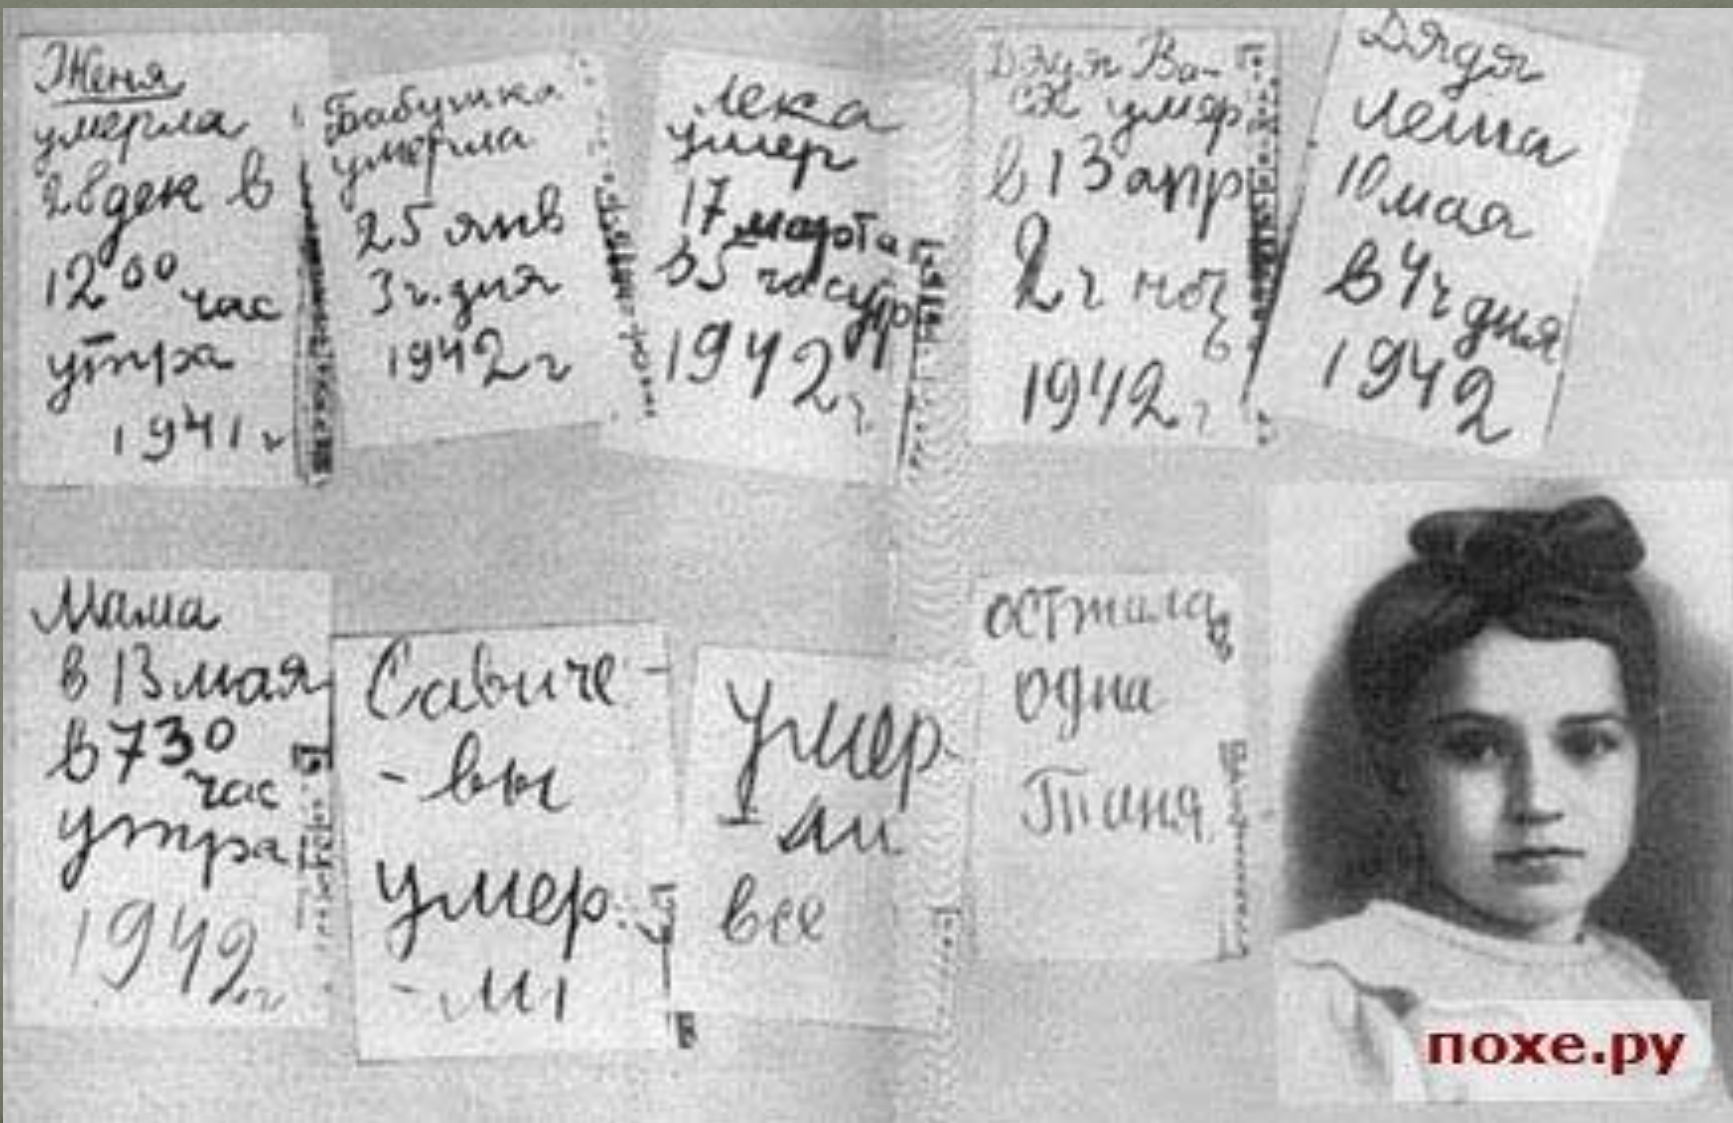 Женя
умерла
28 дек в
12 00 час
утра
1941 г
Бабушка
умерла
25 янв
3 ч. дня
1942 г
Лека
умер
17 марта
в 5 час утр
1942 г
Дядя Ва-
ся умер
в 13 апр
2 ч ноч
ь
1942 г
Дядя
Леша
10 мая
в 4 ч дня
1942
Мама
в 13 мая
в 7 30
час
утра
1942 г
Савиче-
-вы
умер
-ли
Умер
-ли
все
осталась
одна
Таня
похе.ру